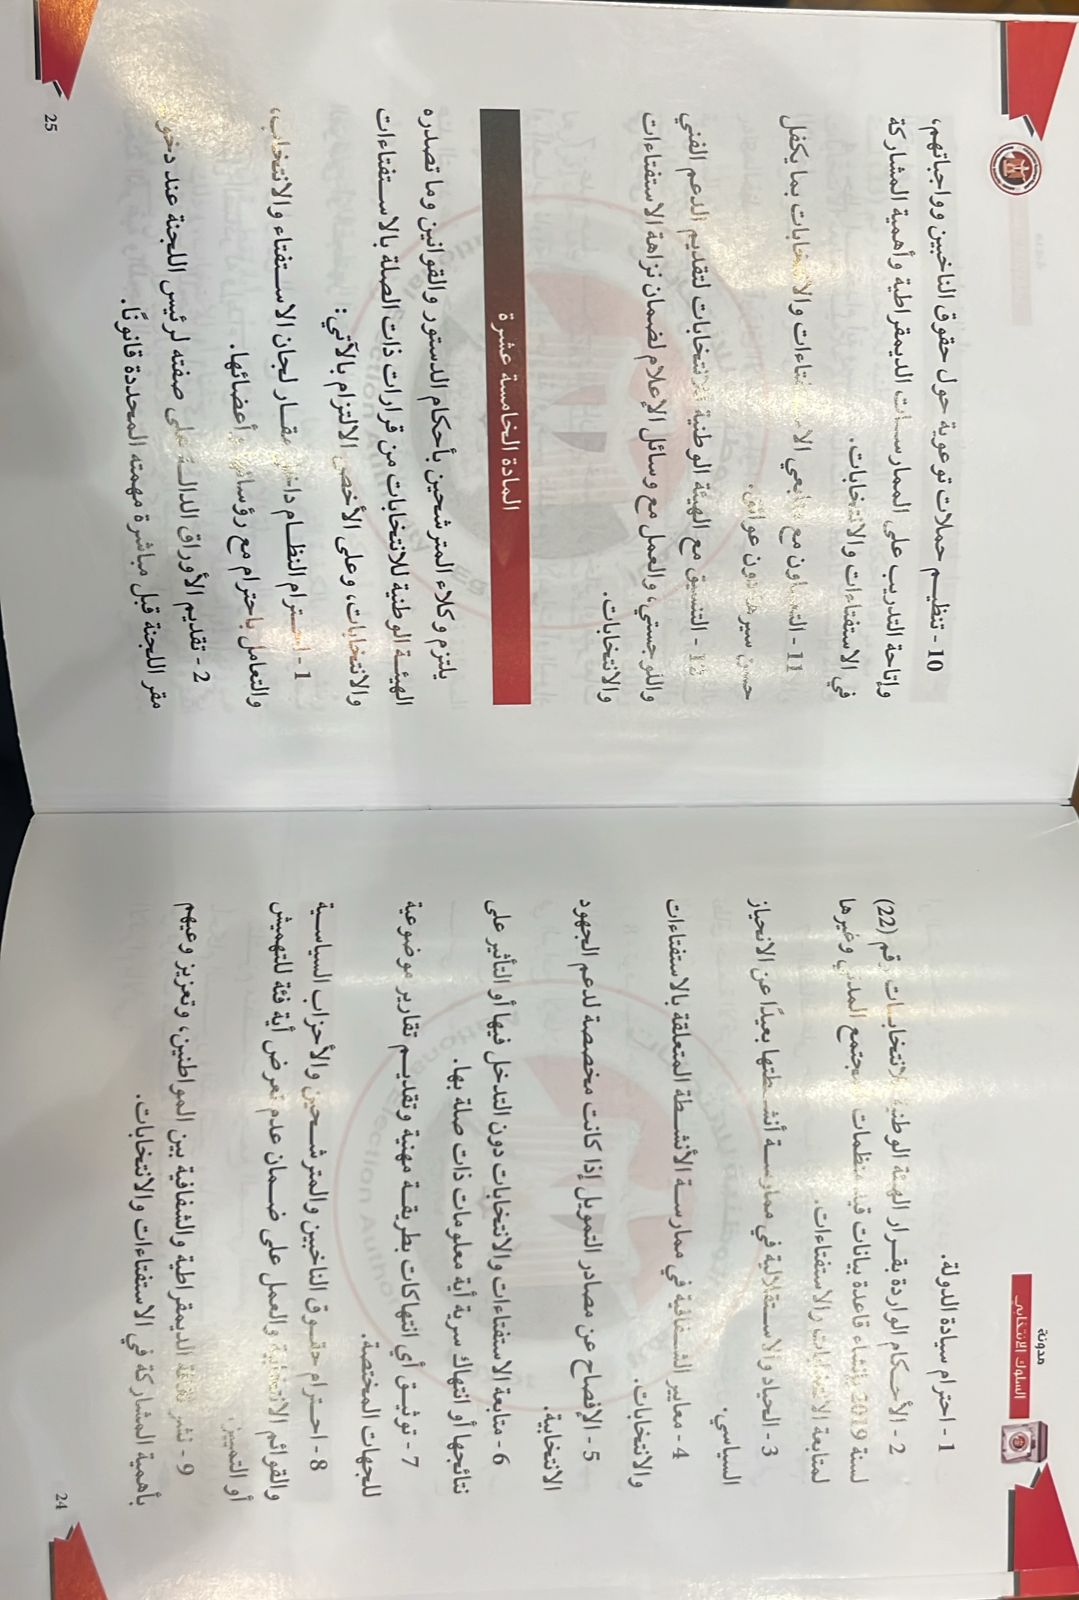 مدونة
السلوك الانتخابي
1 - احترام سيادة الدولة.
2 - الأحكام الواردة بقرار الهيئة الوطنية للانتخابات رقم (22)
لسنة 2019 بإنشاء قاعدة بيانات قيد منظمات المجتمع المدني وغيرها
لمتابعة الانتخابات والاستفتاءات.
3 - الحياد والاستقلالية في ممارسة أنشطتها بعيدًا عن الانحياز
السياسي.
4 - معايير الشفافية في ممارسة الأنشطة المتعلقة بالاستفتاءات
والانتخابات.
5 - الإفصاح عن مصادر التمويل إذا كانت مخصصة لدعم الجهود
الانتخابية.
6 - متابعة الاستفتاءات والانتخابات دون التدخل فيها أو التأثير على
نتائجها أو انتهاك سرية أية معلومات ذات صلة بها.
7 - توثيق أي انتهاكات بطريقة مهنية وتقديم تقارير موضوعية
للجهات المختصة.
8 - احترام حقوق الناخبين والمترشحين والأحزاب السياسية
والقوائم الانتخابية والعمل على ضمان عدم تعرض أية فئة للتهميش
أو التمييز.
9 - نشر ثقافة الديمقراطية والشفافية بين المواطنين، وتعزيز وعيهم
بأهمية المشاركة في الاستفتاءات والانتخابات.
24
10 - تنظيم حملات توعوية حول حقوق الناخبين وواجباتهم،
وإتاحة التدريب على الممارسات الديمقراطية وأهمية المشاركة
في الاستفتاءات والانتخابات.
11 - التعاون مع مراقبي الاستفتاءات والانتخابات بما يكفل
حسن سيرها دون عوائق.
12 - التنسيق مع الهيئة الوطنية للانتخابات لتقديم الدعم الفني
واللوجستي، والعمل مع وسائل الإعلام لضمان نزاهة الاستفتاءات
والانتخابات.
المادة الخامسة عشرة
يلتزم وكلاء المترشحين بأحكام الدستور والقوانين وما تصدره
الهيئة الوطنية للانتخابات من قرارات ذات الصلة بالاستفتاءات
والانتخابات، وعلى الأخص الالتزام بالآتي:
1 - احترام النظام داخل مقار لجان الاستفتاء والانتخاب،
والتعامل باحترام مع رؤسائها وأعضائها.
2 - تقديم الأوراق الدالة على صفته لرئيس اللجنة عند
مقر اللجنة قبل مباشرة مهمته المحددة قانونًا.
25